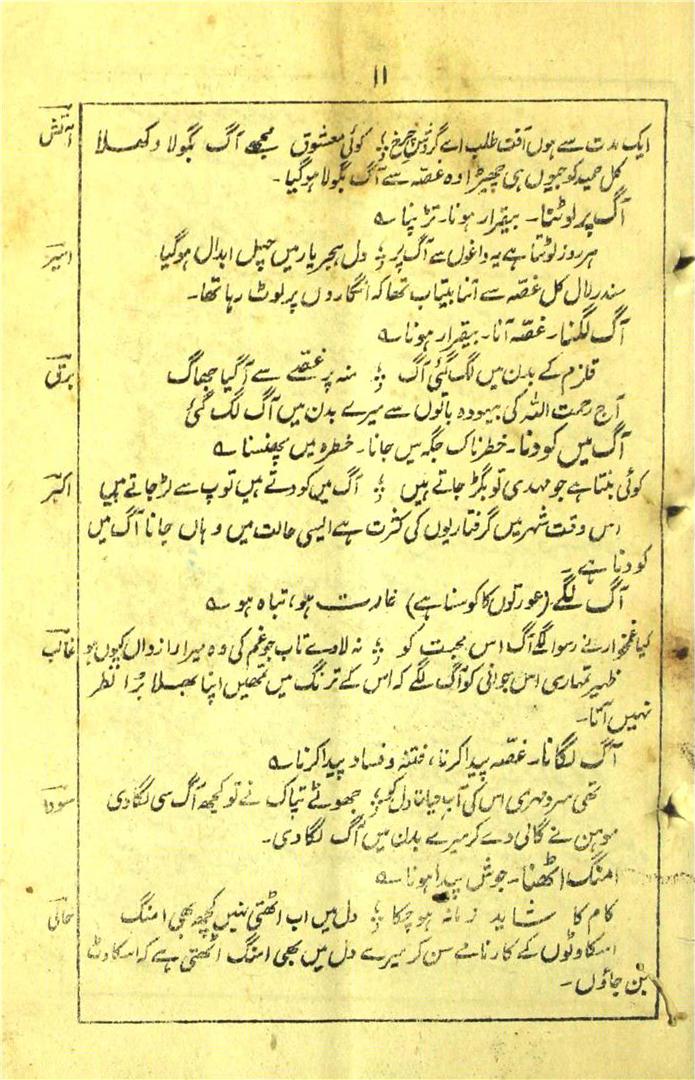 ۱۱
ایک مدت سے ہوں آفت طلب اے گردش چرخ ؛ کوئی معشوق مجھے آگ بگولا دکھلا آتش
کل حمید کو جیوں ہی چھیڑا وہ غصّہ سے آگ بگولا ہوگیا۔
آگ پر لوٹنا۔ بیقرار ہونا۔ تڑپنا ؎
ہر روز لوٹتا ہے یہ داغوں سے آگ پر ؛ دل ہجر یار میں چہل ابدال ہوگیا امیر
سندر لال کل غصّہ سے اتنا بیتاب تھا کہ انگاروں پر لوٹ رہا تھا۔
آگ لگنا۔ غصّہ آنا۔ بیقرار ہونا ؎
قلزم کے بدن میں لگ گئی آگ ؛ منہ پر غصّے سے آگیا جھاگ برقی
آج رحمت اللہ کی بیہودہ باتوں سے میرے بدن میں آگ لگ گئی
آگ میں کودنا۔ خطرناک جگہ میں جانا۔ خطرہ میں پھنسنا ؎
کوئی بنتا ہے جو مہدی تو بگڑ جاتے ہیں ؛ آگ میں کودتے ہیں توپ سے لڑ جاتے ہیں اکبر
اس وقت شہر میں گرفتاریوں کی کثرت ہے ایسی حالت میں وہاں جانا آگ میں
کودنا ہے۔
آگ لگے۔ (عورتوں کا کوسنا ہے) غارت ہو، تباہ ہو ؎
کیا غمخوار نے رسوا لگے آگ اس محبت کو ؛ نہ لاوے تاب جو غم کی وہ میرا رازداں کیوں ہو غالب
ظہیر تمہاری اس جوانی کو آگ لگے کہ اس کے ترنگ میں تمھیں اپنا بھلا بُرا نظر
نہیں آتا۔
آگ لگانا۔ غصّہ پیدا کرنا، فتنہ و فساد پیدا کرنا ؎
تھی سرد مہری اس کی آب حیات دل کو ؛ جھوٹے تپاک نے تو کچھ آگ سی لگادی سودا
موہن نے گالی دے کر میرے بدن میں آگ لگادی۔
امنگ اٹھنا۔ جوش پیدا ہونا ؎
کام کا شاید زمانہ ہوچکا ؛ دل میں اب اٹھتی نہیں کچھ بھی امنگ حالی
اسکاوٹوں کے کارنامے سن کر میرے دل میں بھی امنگ اٹھتی ہے کہ اسکاوٹ
بن جاؤں۔